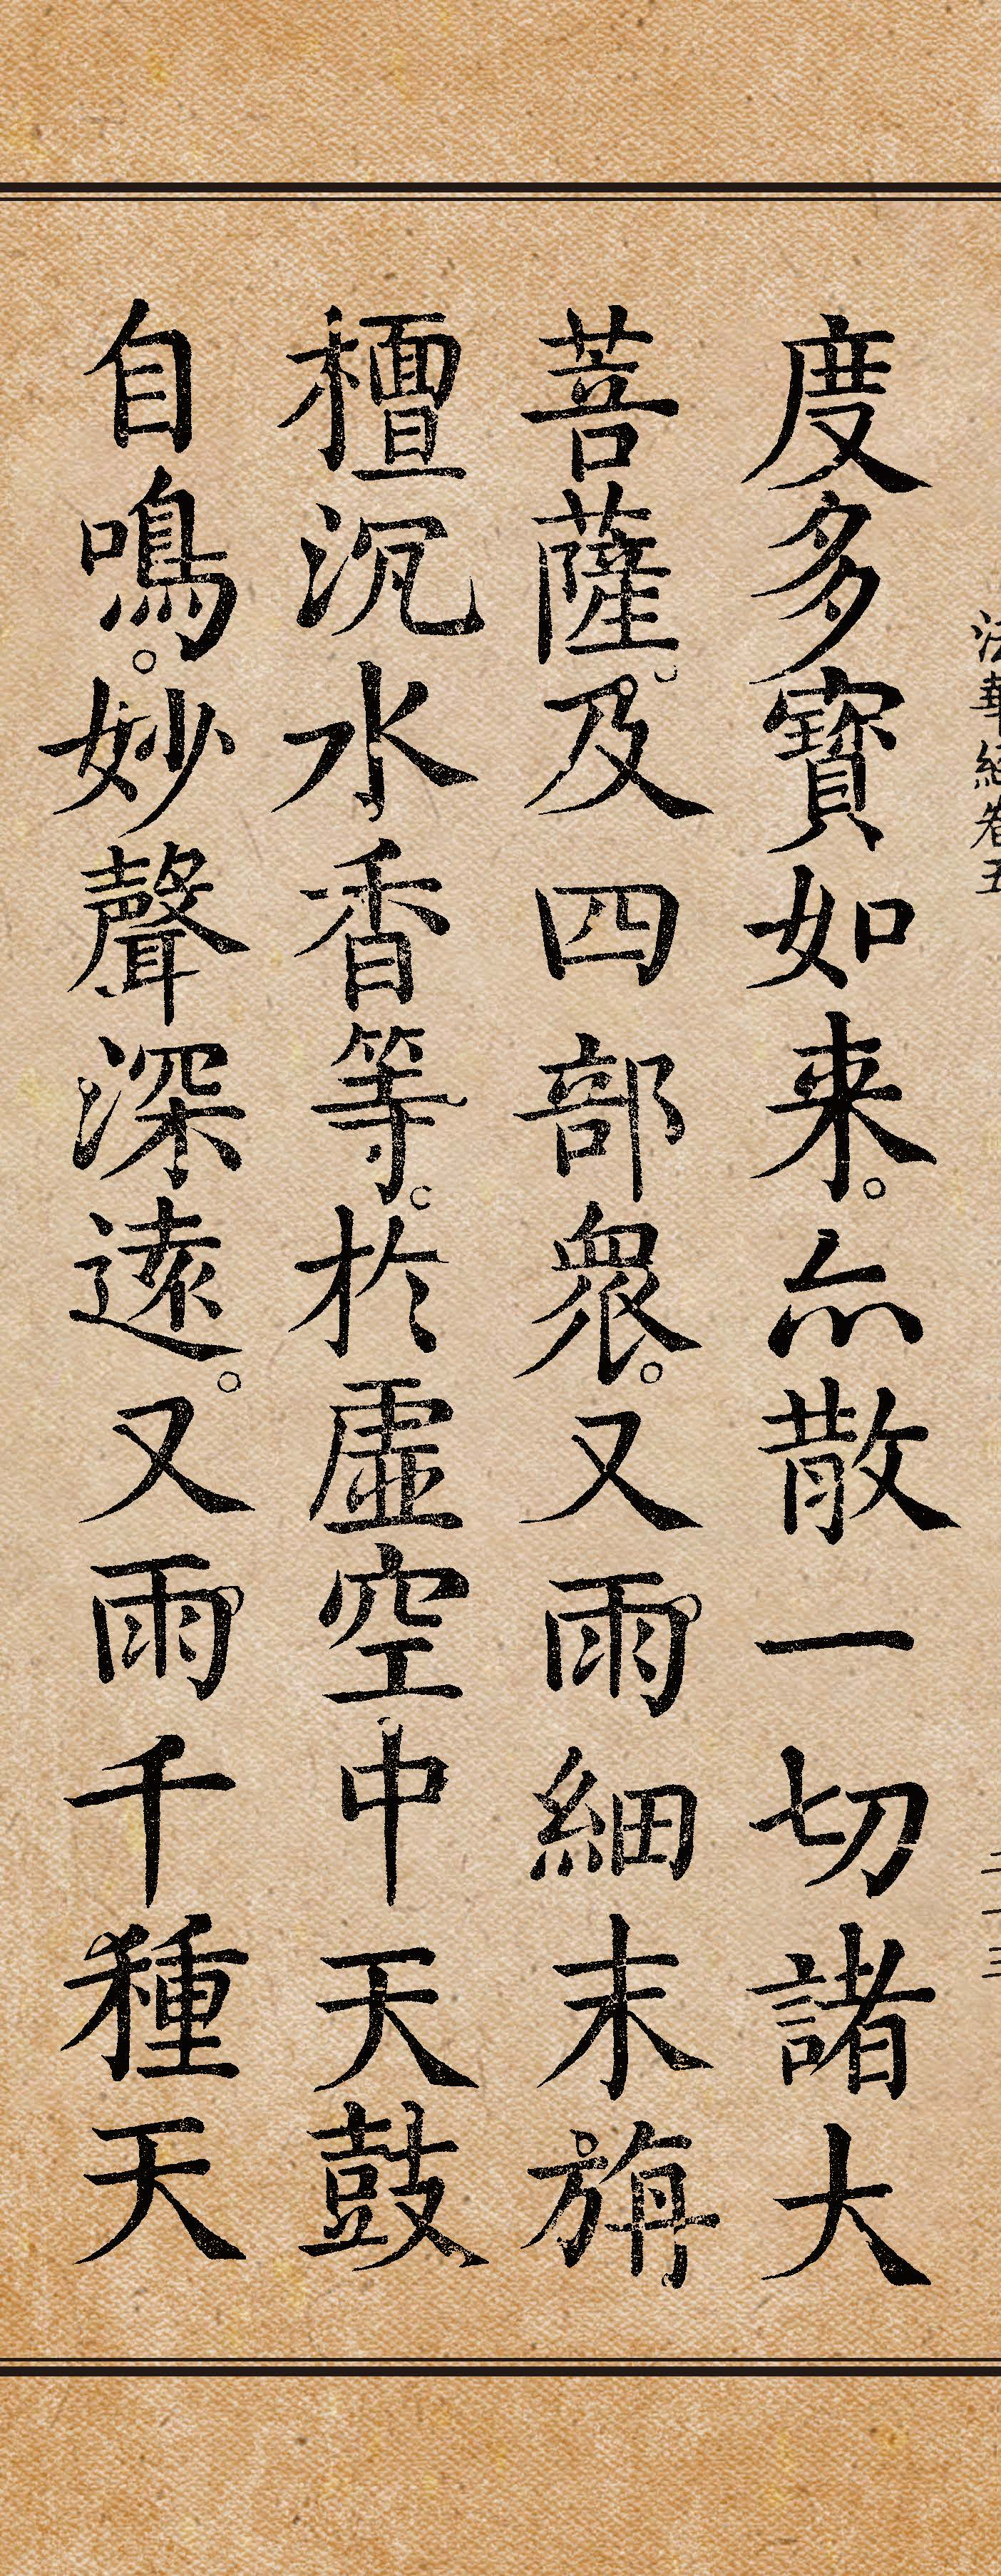 法華經卷五
度多寶如来。亦散一切諸大
菩薩。及四部衆。又雨細末旃
檀沉水香等。於虛空中天鼓
自鳴。妙聲深遠。又雨千種天